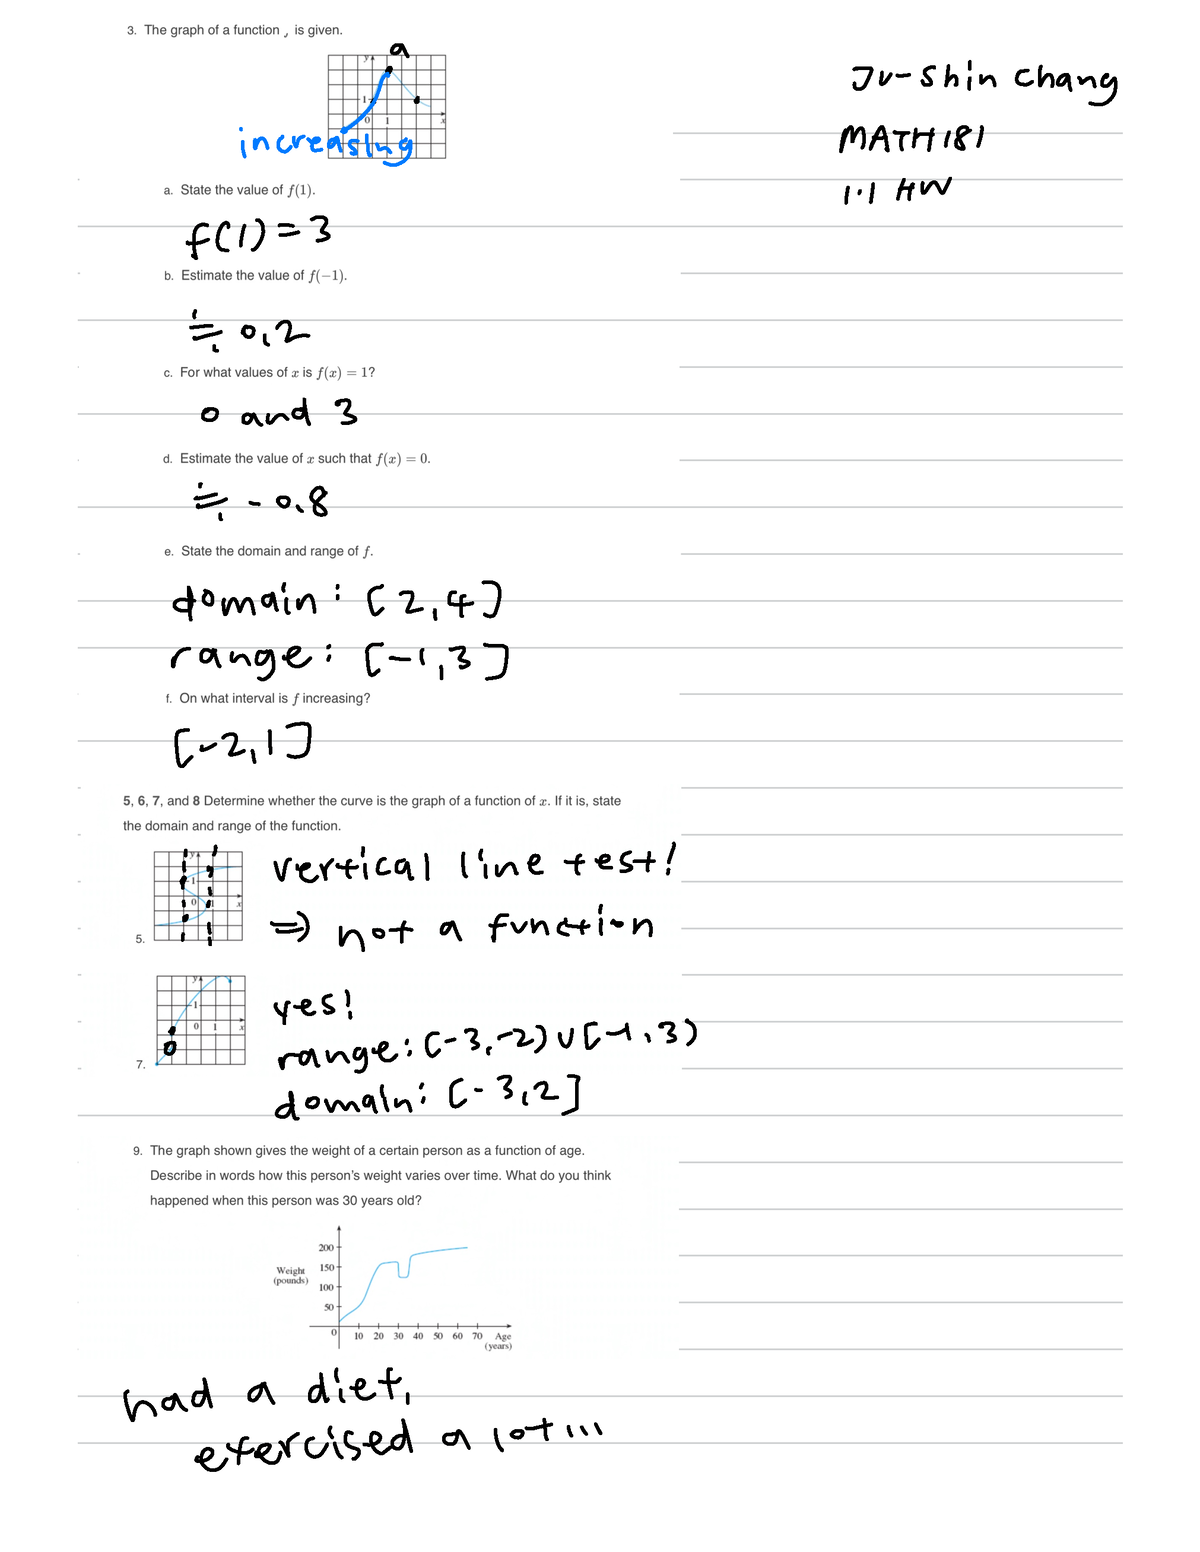 3. The graph of a function , is given.
a
y
1
0 1 x
increasing
Ju-Shin Chang
MATH 181
1.1 HW
a. State the value of f(1).
f(1) = 3
b. Estimate the value of f(−1).
≒ 0.2
c. For what values of x is f(x) = 1?
0 and 3
d. Estimate the value of x such that f(x) = 0.
≒ -0.8
e. State the domain and range of f.
domain: [2,4]
range: [-1,3]
f. On what interval is f increasing?
[-2,1]
5, 6, 7, and 8 Determine whether the curve is the graph of a function of x. If it is, state
the domain and range of the function.
y
1
0 1 x
5.
vertical line test!
⇒ not a function
y
1
0 1 x
7.
yes!
range: [-3,-2) ∪ [-1,3)
domain: [-3,2]
9. The graph shown gives the weight of a certain person as a function of age.
Describe in words how this person's weight varies over time. What do you think
happened when this person was 30 years old?
200
Weight 150
(pounds) 100
50
0 10 20 30 40 50 60 70 Age
(years)
had a diet,
exercised a lot...